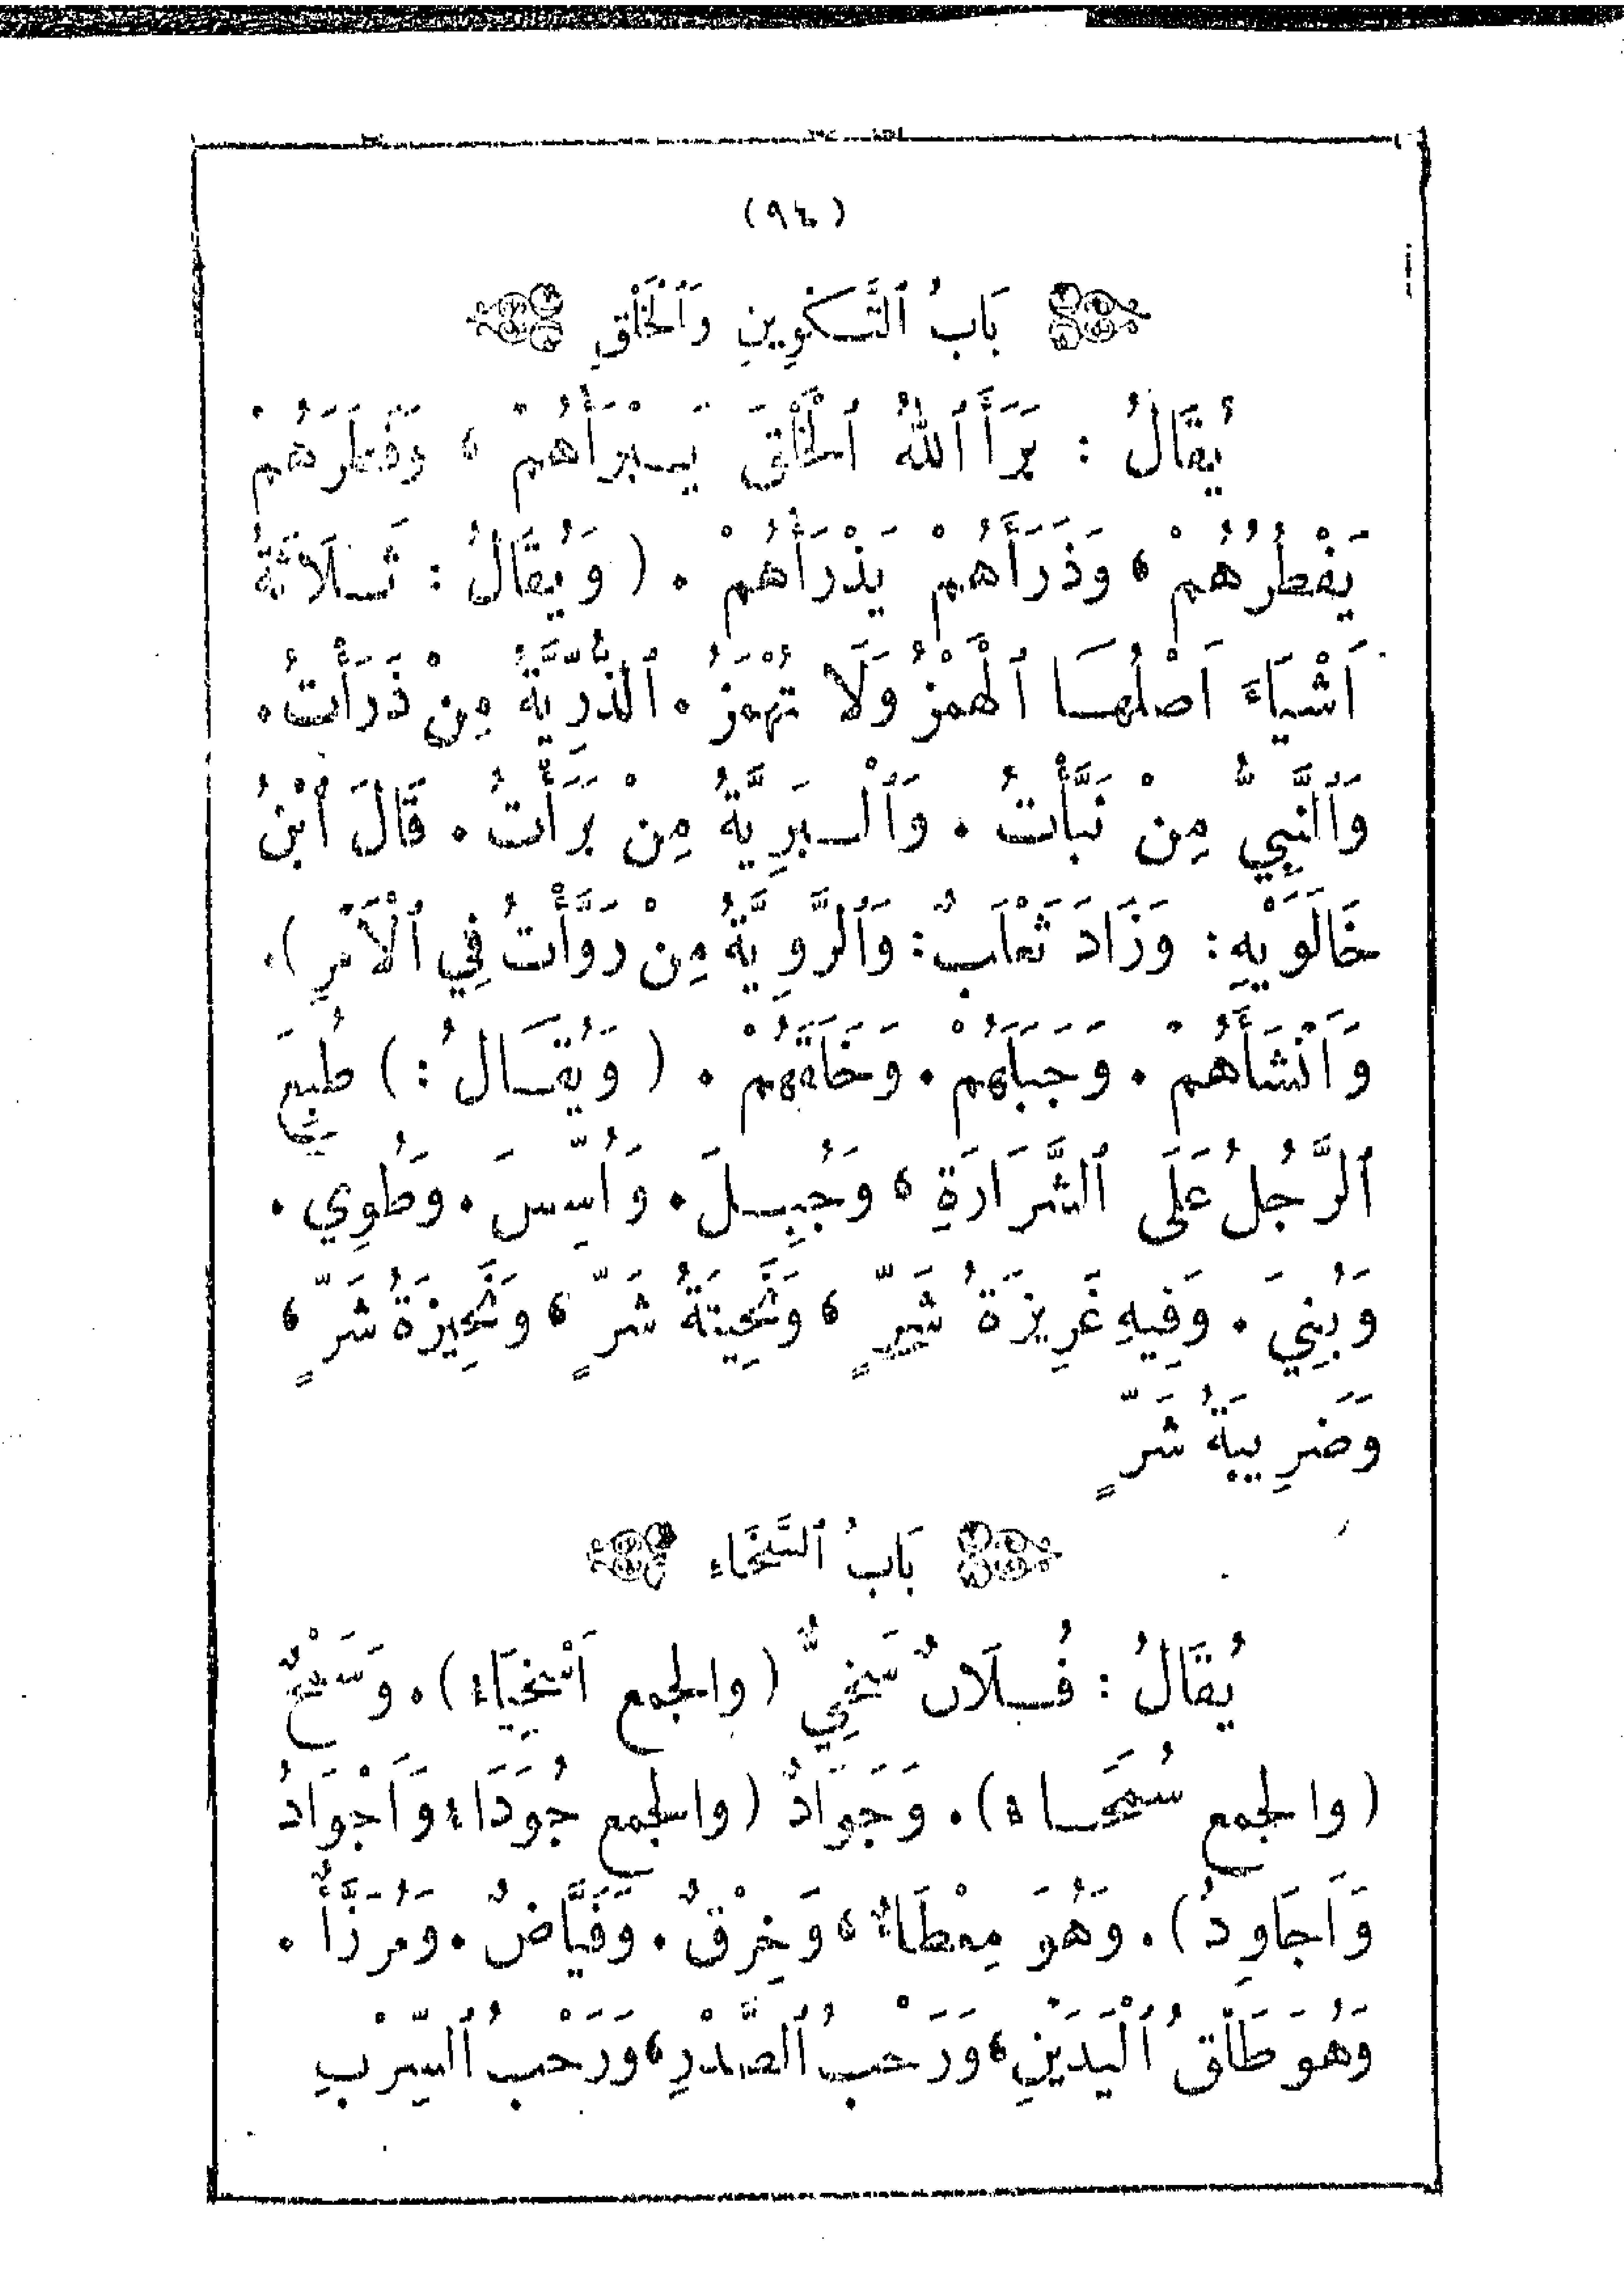 (٩٤)
بَابُ ٱلتَّكْوِينِ وَٱلْخَلْقِ
يُقَالُ : بَرَأَ ٱللهُ ٱلْخَلْقَ يَبْرَأُهُمْ ، وَفَطَرَهُمْ
يَفْطُرُهُمْ ، وَذَرَأَهُمْ يَذْرَأُهُمْ . ( وَيُقَالُ : ثَلَاثَةُ
أَشْيَاءَ اَصْلُهَا ٱلْهَمْزُ وَلَا تُهْمَزُ . ٱلذُّرِّيَّةُ مِنْ ذَرَأْتُ .
وَٱلنَّبِيُّ مِنْ نَبَّأْتُ . وَٱلْبَرِيَّةُ مِنْ بَرَأْتُ . قَالَ ٱبْنُ
خَالَوَيْهِ : وَزَادَ ثَعْلَبٌ : وَٱلرَّوِيَّةُ مِنْ رَوَّأْتُ فِي ٱلْأَمْرِ ) .
وَاَنْشَأَهُمْ . وَجَبَلَهُمْ . وَخَلَقَهُمْ . ( وَيُقَالُ : ) طُبِعَ
ٱلرَّجُلُ عَلَى ٱلشَّرَارَةِ ، وَجُبِلَ . وَاُسِّسَ . وَطُوِيَ .
وَبُنِيَ . وَفِيهِ غَرِيزَةُ شَرٍّ ، وَنَحِيتَةُ شَرٍّ ، وَنَحِيزَةُ شَرٍّ ،
وَضَرِيبَةُ شَرٍّ
بَابُ ٱلسَّخَاءِ
يُقَالُ : فُلَانٌ سَخِيٌّ ( والجمع اَسْخِيَاء ) . وَسَمْحٌ
( والجمع سُمَحَاء ) . وَجَوَادٌ ( والجمع جُوَدَاء وَاَجْوَادُ
وَاَجَاوِدُ ) . وَهُوَ مِعْطَاءٌ ، وَخِرْقٌ . وَفَيَّاضٌ . وَمُرَزَّأٌ .
وَهُوَ طَلْقُ ٱلْيَدَيْنِ ، وَرَحْبُ ٱلصَّدْرِ ، وَرَحْبُ ٱلسِّرْبِ